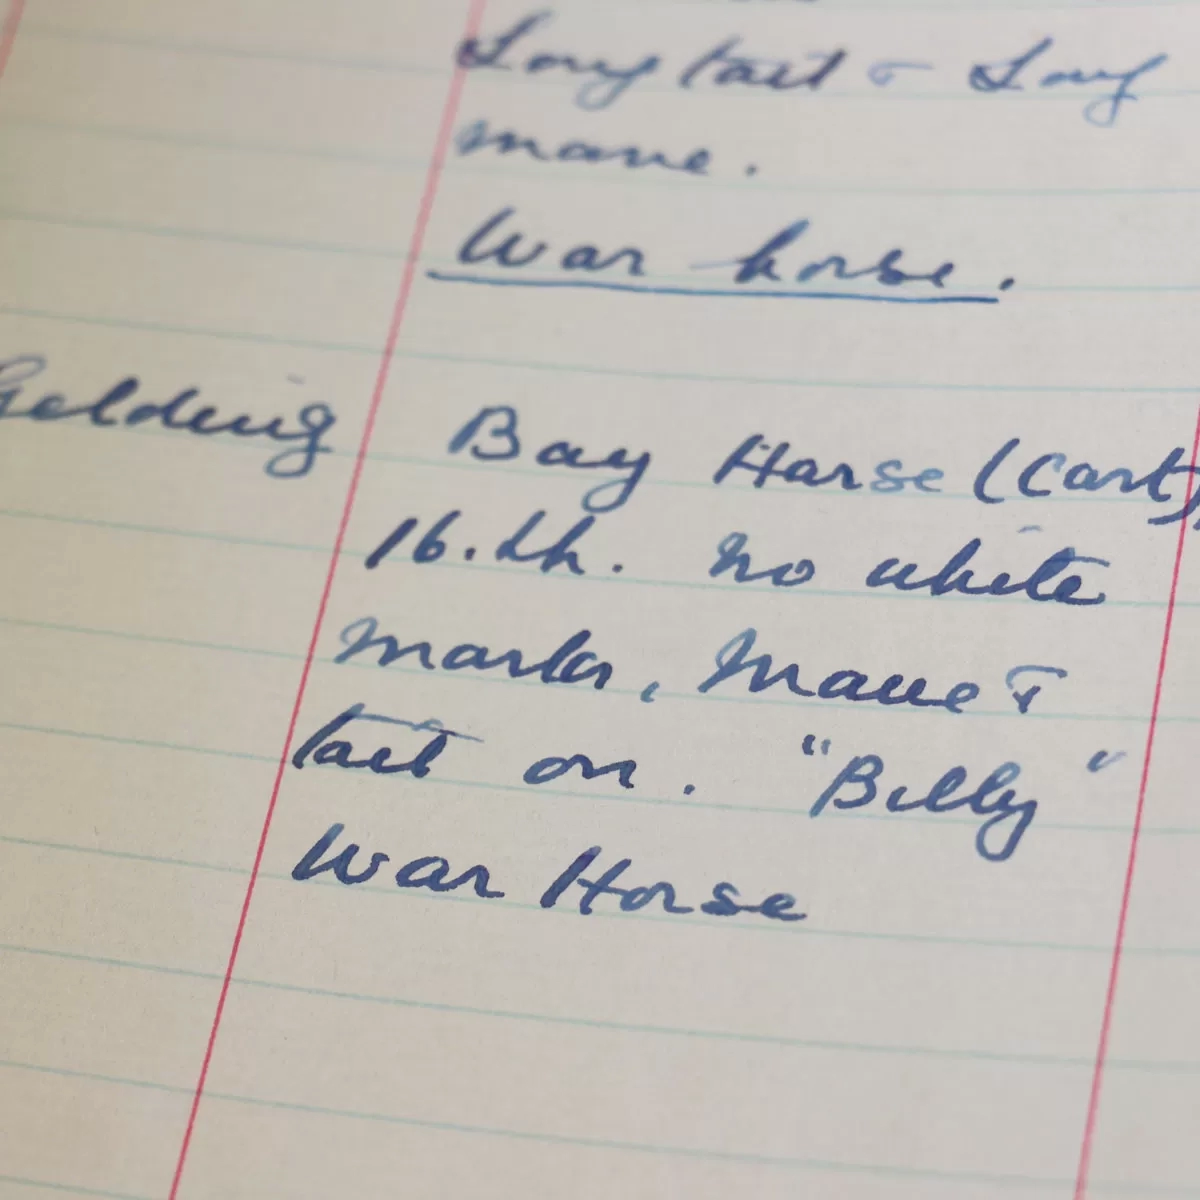 Long tail & Long
mane.
War horse.
Gelding Bay Horse (Cart),
16.2h. no white
marks, Mane &
tail on. "Billy"
War Horse